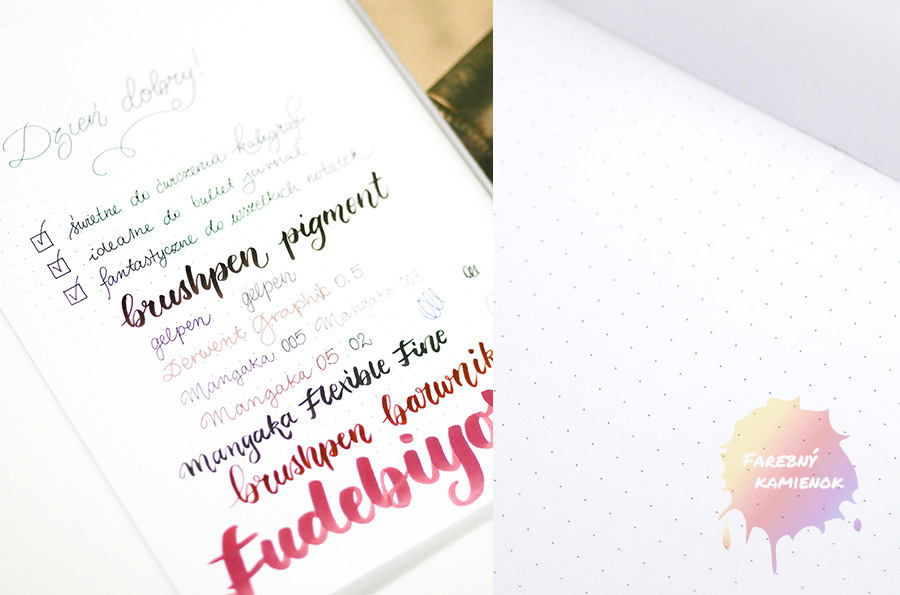 Dzień dobry!
świetne do ćwiczenia kaligrafii
idealne do bullet journal
fantastyczne do wszelkich notatek
brushpen pigment
gelpen gelpen
Derwent Graphik 0.5
Mangaka 005 Mangaka 003
Mangaka 05 02
mangaka Flexible Fine
brushpen barwnik
fudebiyo
Farebný
kamienok